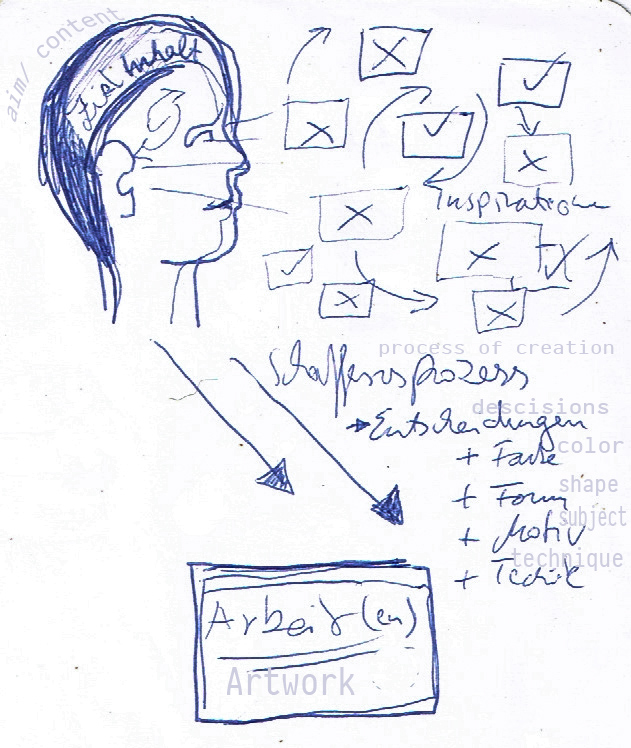 aim/ content
Ziel Inhalt
Inspiration
process of creation
Schaffensprozess
descisions
Entscheidungen
color
+ Farbe
shape
+ Form
subject
+ Motiv
technique
+ Technik
Arbeit(en)
Artwork